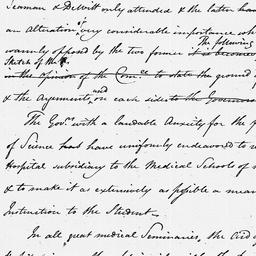 Seaman & DeWitt only attended & the latter have
an alteration of very considerable importance wh
warmly opposed by the two former it is become
The following
Sketch of the
in the opinion of the Com.ee to state the ground
& the Arguments, used on each side to the Governors
The Gov.rs with a laudable Anxiety for the p
of Science have uniformly endeavored to
Hospital subsidiary to the Medical Schools of
& to make it as extensively as possible a mean
Instruction to the Student
In all great medical Seminaries, the